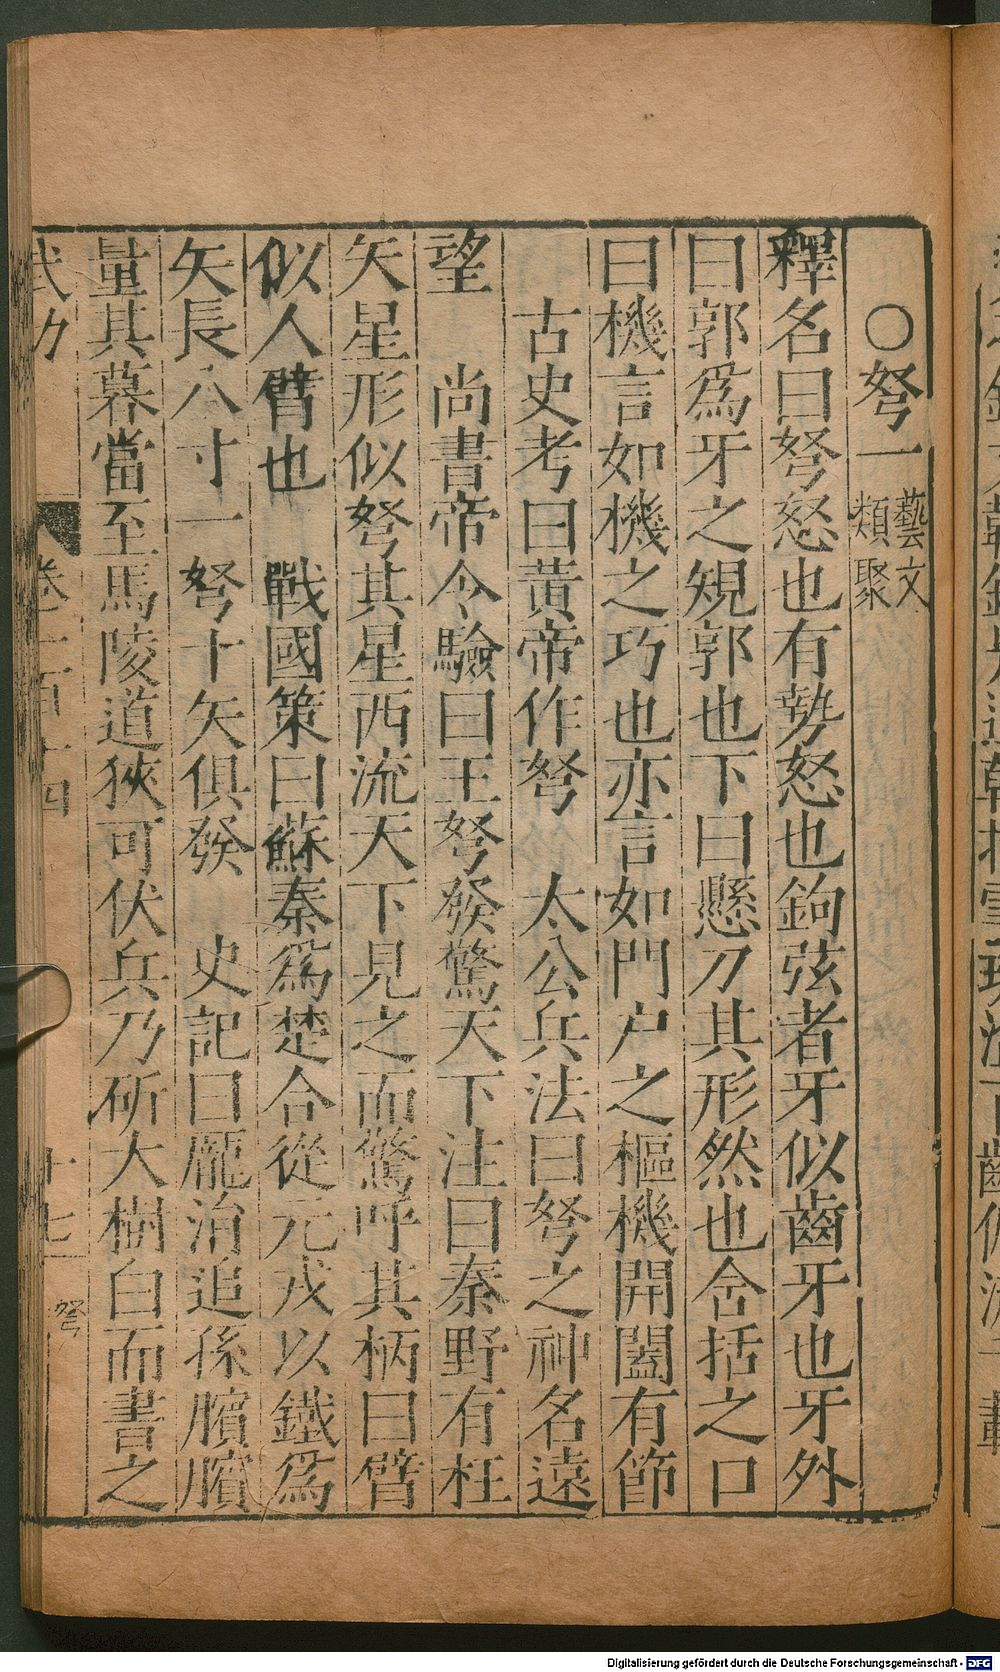 ○弩一 藝文類聚
釋名曰弩怒也有勢怒也鉤弦者牙似齒牙也牙外
曰郭爲牙之規郭也下曰懸刀其形然也含括之口
曰機言如機之巧也亦言如門户之樞機開闔有節
古史考曰黄帝作弩 太公兵法曰弩之神名遠
望 尚書帝令驗曰王弩發驚天下注曰秦野有枉
矢星形似弩其星西流天下見之而驚呼其柄曰臂
似人臂也 戰國策曰蘇秦爲楚合從元戎以鐵爲
矢長八寸一弩十矢俱發 史記曰龐涓追孫臏臏
量其暮當至馬陵道狹可伏兵乃斫大樹白而書之
武功 卷二百十四 十七 弩
Digitalisierung gefördert durch die Deutsche Forschungsgemeinschaft - DFG